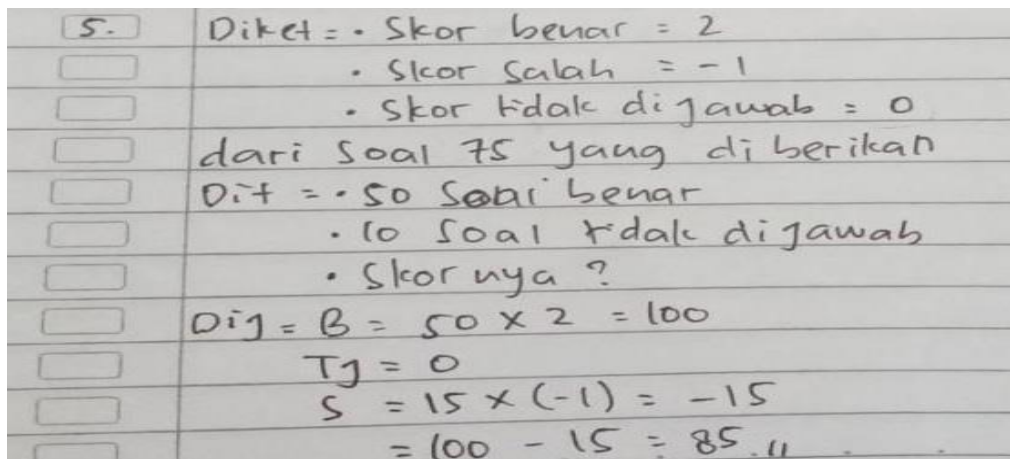 5. Diket = • Skor benar = 2
• Skor Salah = -1
• Skor tidak dijawab = 0
dari Soal 75 yang diberikan
Dit = • 50 Soal benar
• 10 Soal tidak dijawab
• Skornya ?
Dij = B = 50 × 2 = 100
Tj = 0
S = 15 × (-1) = -15
= 100 - 15 = 85 ,,